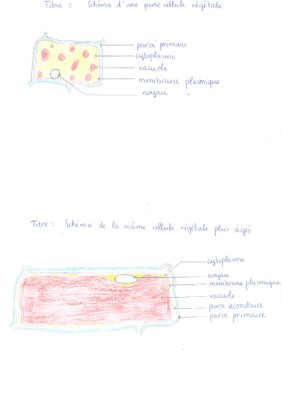 Titre : Schéma d'une jeune cellule végétale
paroi primaire
cytoplasme
vacuole
membrane plasmique
noyau
Titre : Schéma de la même cellule végétale plus âgée
cytoplasme
noyau
membrane plasmique
vacuole
paroi secondaire
paroi primaire